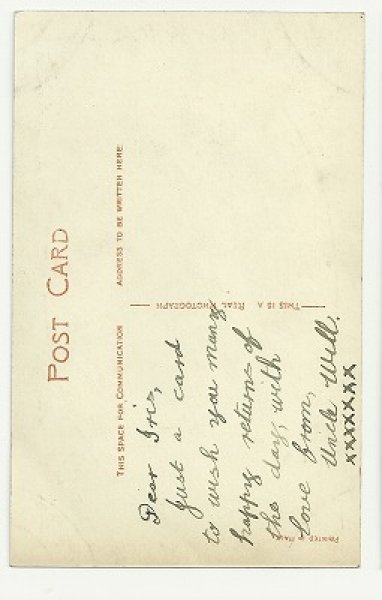 POST CARD
THIS SPACE FOR COMMUNICATION
ADDRESS TO BE WRITTEN HERE
THIS IS A REAL PHOTOGRAPH
Dear Iris,
Just a card
to wish you many
happy returns of
the day, with
Love from,
Uncle Will.
xxxxxxx
PRINTED IN